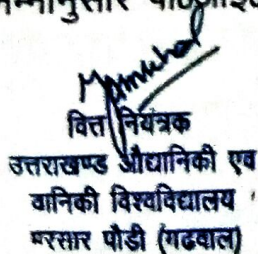 वित्त नियंत्रक
उत्तराखण्ड औद्यानिकी एवं
वानिकी विश्वविद्यालय
भरसार पौडी (गढवाल)